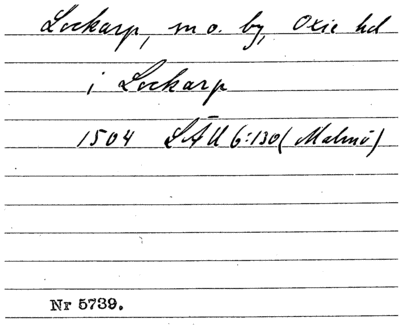 Lockarp, sn o. by, Oxie hd
i Lockarp
1504 LÄU 6:130 (Malmö)
Nr 5739.